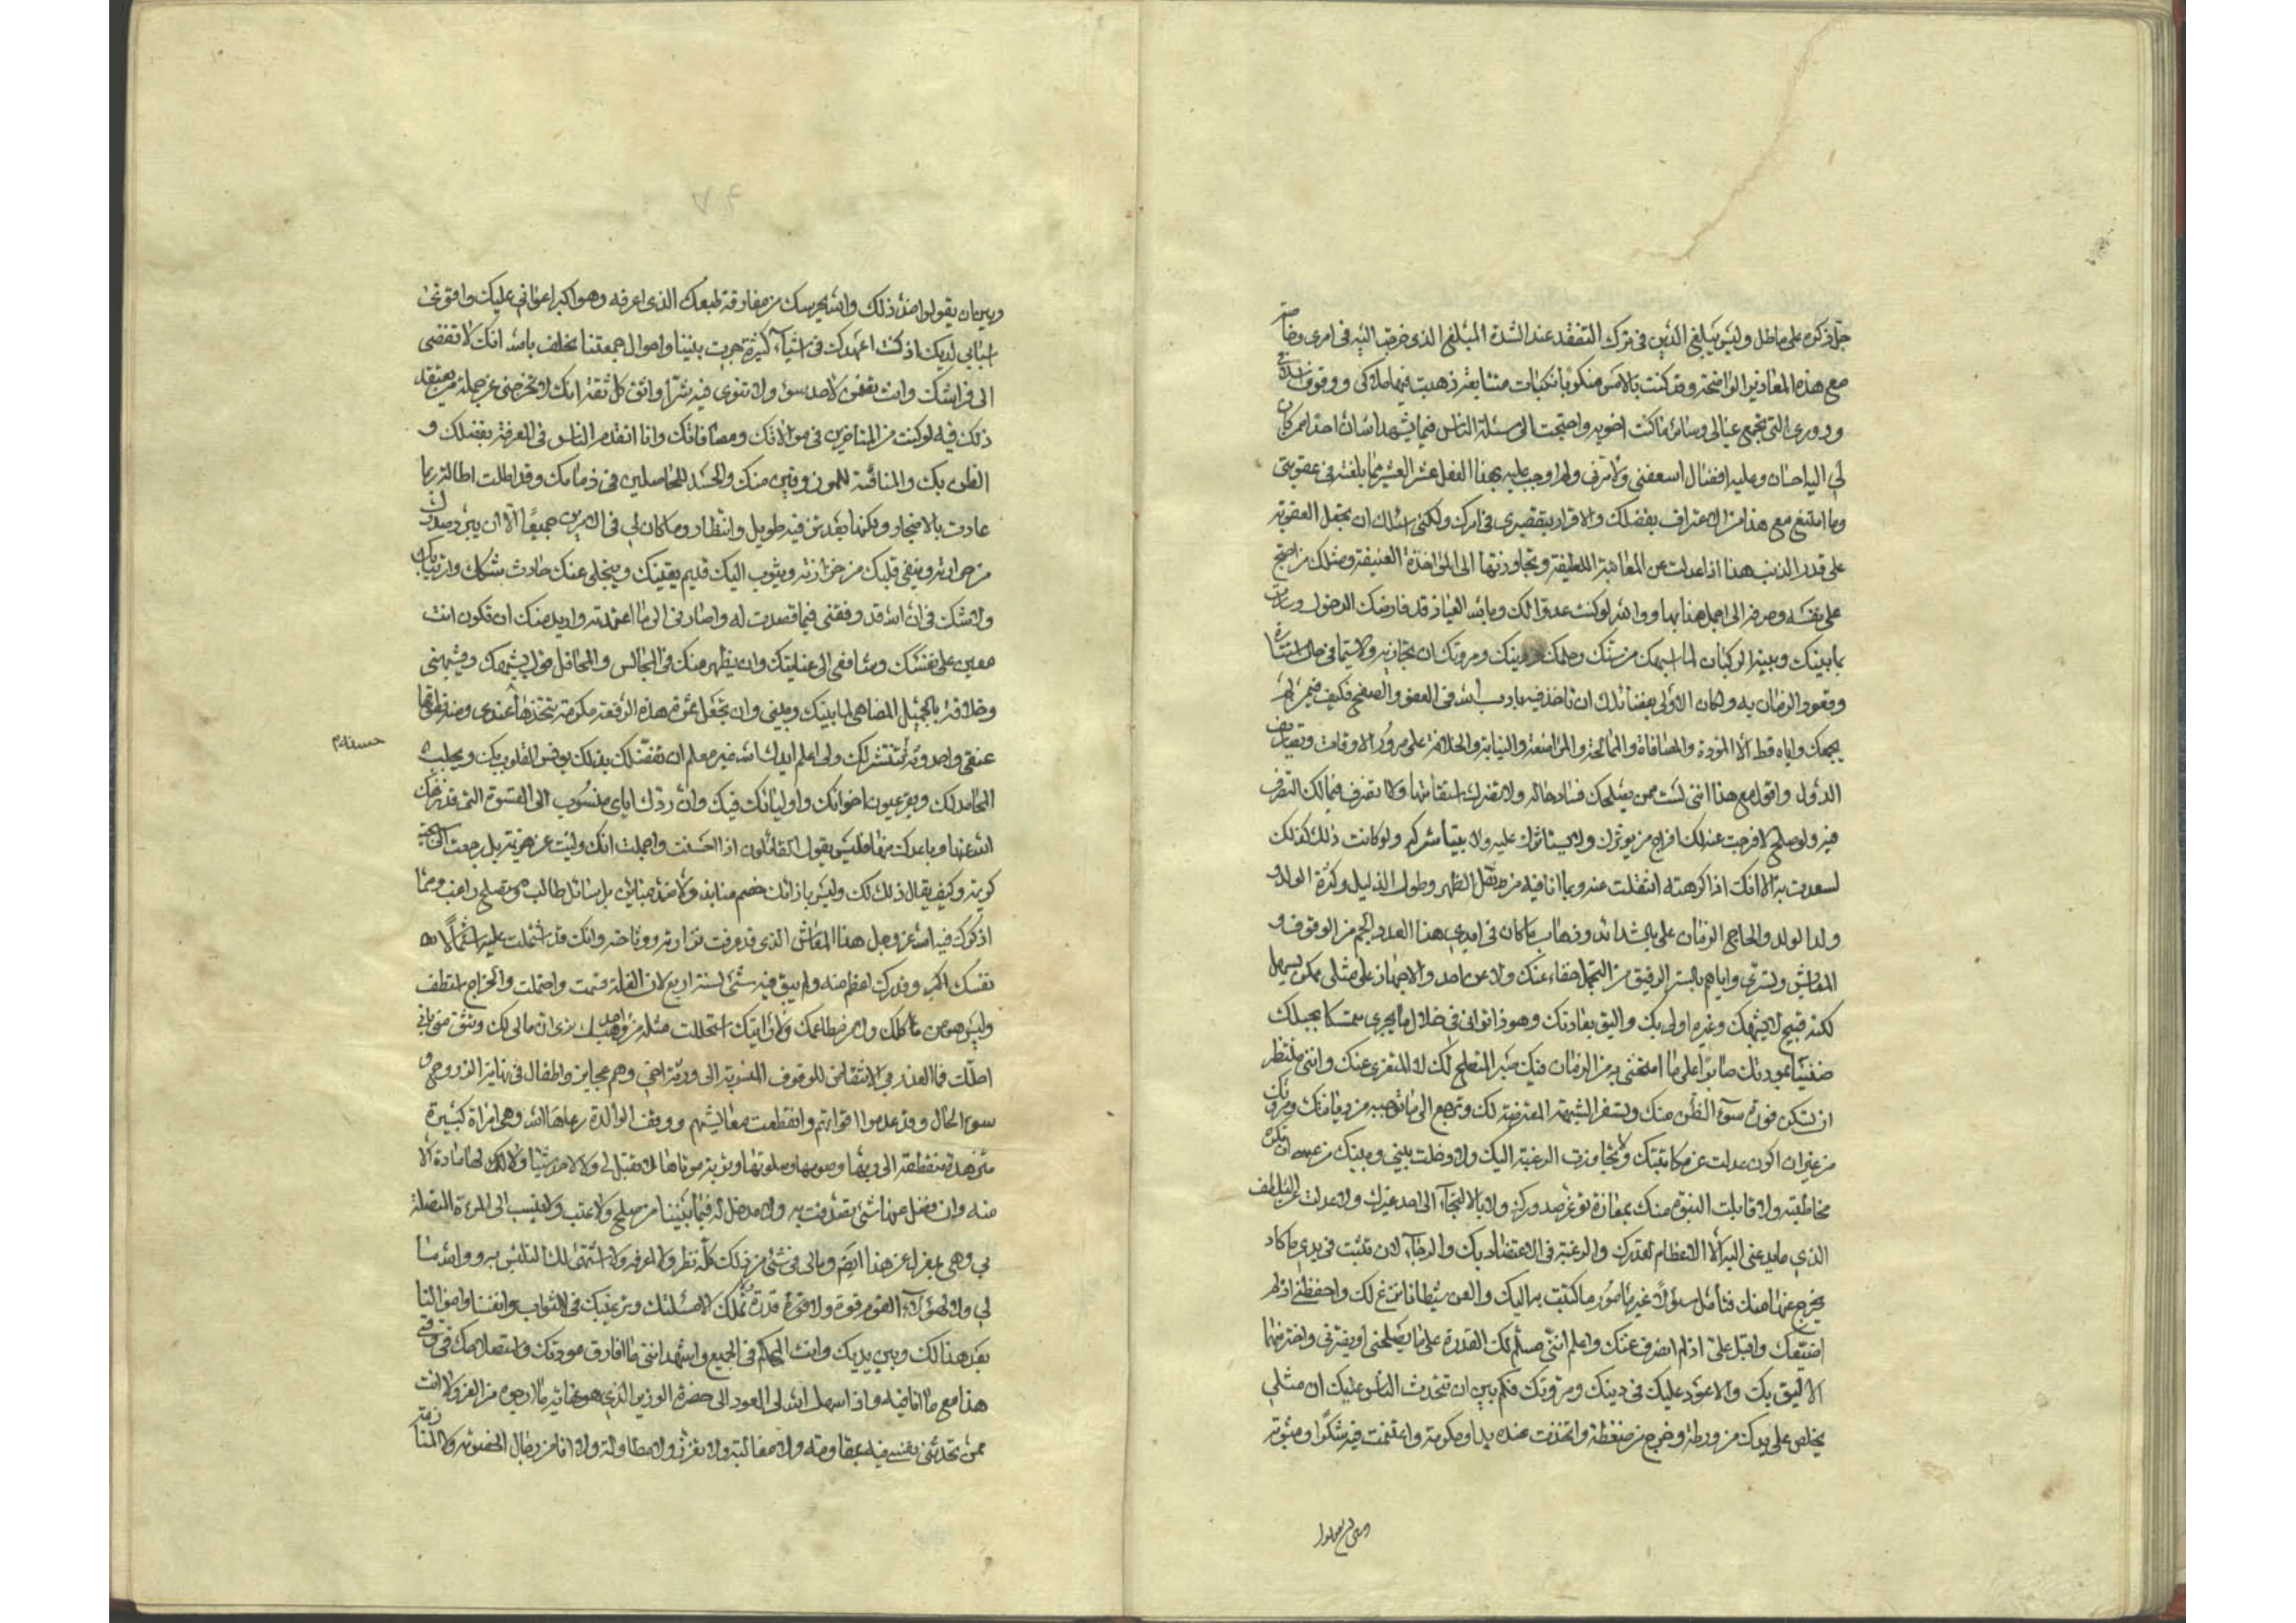 جل ذكره على ما طل وليس يبلغ الذين في ترك التفقد عند الشدة المبلغ الذي خرجت اليه في امري وخاصة
مع هذه المعاذير الواضحة وقد كنت بالامس منكوبا نكبات متتابعة ذهبت فيها املاكي ووقوف
ودوري التي تجمع عيالي وسائر ما كنت احويه واصبحت الى مسئلة الناس فيما يشهد انسان احد امر كان
لي اليه احسان وعليه افضال اسعفني ولا مرفق ولم اوجب عليه بهذا الفعل عشر العشير مما بلغته في عقوبتي
وما امتنع مع هذا من الاعتراف بفضلك والاقرار بتقصيري في امرك ولكني اسئلك ان تجعل العقوبة
على قدر الذنب هذا اذا عدلت عن المعاتبة اللطيفة وتجاوزتها الى المؤاخذة العنيفة ومثلك من احتج
على نفسه وصرفها الى اجمل هذا بها ووالله لو كنت عدوا لك وبالله العياذ قد فاوضك الدخول
ما بينك وبين الركبان لما اشبهك من سنك وحلمك ودينك ومروتك ان تجازيه ولا سيما في حال
وقعود الزمان به ولكان الاولى بفضلك ان تاخذ فيه بادب الله في العفو والصفح فكيف فيمن لم
يجمعك واياه قط الا المودة والمصافاة والممالحة والمؤانسة والنيابة والخلافة على مرور الاوقات وتصاريف
الدول واقول مع هذا انني لست ممن يصلحك فساد حاله ولا يقتدك استقامتها ولا تصرف فيما لك التصرف
فيه ولو صلح لافرجت عنه لك افراج من يؤثرك ولا يستاثرك عليه ولا يتباشركم ولو كانت ذلك كذلك
لسعدت به الا انك اذا كرهته انتقلت عنه وبما انا فيه من ثقل الظهر وطول الذليل وكثرة الولد و
ولد الولد والحاح الزمان علي بالشدائد وذهاب ما كان في ايدي هذا العدد الجم من الوقوف و
المعايش ولستري واياهم بالستر الرقيق من التجمل خفاء عنك ولا عن احد والاجهاز على مثلي ممكن يسهل
لكنه قبيح لا يشبهك وغيره اولى بك واليق بعادتك وهو ذا تراني في خلال ما يجري متمسكا بحبلك
ضنينا بمودتك صابرا على ما امتحنني به من الزمان فيك صبر المتصلح لك لا المتعزي عنك وانني منتظر
ان تسكن فورة سوء الظن منك وتسفر الشبهة المعترضة لك وترجع الى ما توجبه من ديانتك ومروتك
من غير ان اكون عدلت عن مكاتبتك ولا تجاوزت الرغبة اليك ولا دخلت بيني وبينك من
مخاطبته ولا قابلت النبوة منك بمغازة توغر صدرك ولا بالالتجاء الى احد غيرك ولا عدلت عن التلطف
الذي ما يدعني اليه الا الاعظام لقدرك والرغبة في الاعتضاد بك والرجاء لان تثبت في يدي ما كاد
يخرج عنها منك فتامل مسؤلا غير مامور ما كتبت به اليك والعن شيطانا نزغ لك واحفظني اذ لم
اضيعك واقبل علي اذ لم انصرف عنك واعلم انني مسلم لك القدرة على ما يصلحني او يضرني واختر منهما
الاليق بك والاعود عليك في دينك ومروتك فكم بين ان تتحدث الناس عليك ان مثلي
يخلص على يدك من ورطة وخرج من ضغطة واتخذت عنده يدا ومكرمة واغتنمت فيه شكرا ومثوبة
وبين ان يقولوا ضد ذلك والله يحرسك من مفارقة طبعك الذي اعرفه وهو اكبر اعواني عليك واقوى
اسبابي لديك اذ كنت اعهدك في اشياء كثيرة جرت بيننا واحوال جمعتنا تحلف بالله انك لا تفضي
الى فراشك وانت تعتقد لاحد سوء ولا تنوي فيه شرا واثق كل ثقة انك لا تخرجني عن جملة من يعتقد
ذلك فيه لو كنت من المتاخرين في موالاتك ومصافاتك وانا اتقدم الناس في المعرفة بفضلك و
الظن بك والمنافسة للمحزوقين منك والحسد للحاصلين في ذمامك وقد اطلت اطالة ربما
عادت بالاضجار ولكنها بعد توقف طويل وانتظار وما كان لي في الامرين جميعا الا ان يبرد صدرك
من حرارته وينقى قلبك من حزازته ويثوب اليك قديم يقينك وينجلي عنك حادث شكك وارتيابك
ولا شك في ان الله قد وفقني فيما قصدت له واصارني الى ما اعتمدته واريد منك ان تكون انت
معيني على نفسك وشافعي الى عنايتك وان يظهر منك في المجالس والمحافل قول يشبهك ويشبهني
وخلافة بالجميل المضاهي لما بينك وبيني وان تجعل ثمرة هذه الرقعة مكرمة تتخذها عندي ومنة تطوقها
عنقي واحدوثة تنتشر لك ولي اعلم ايدك الله غير معلم ان تفضلك بذلك يونس القلوب بك ويجلب
المحامد لك ويقر عيون اخوانك واوليائك فيك وان ردك اياي منسوب الى القسوة التي قد نزهك
الله عنها وباعدك منها فليس يقول القائلون اذا احسنت واجملت انك وليت عن هزيمة بل رجعت الى
كريمة وكيف يقال ذلك لك وليس بازائك خصم منابذ ولا ضد مباين بل سائل طالب ومتصلح راغب ومما
اذكرك فيه الله عز وجل هذا المعاش الذي قد عرفت نزارته ووتاحته وانك قد اشتملت عليه اشتمالا
نفسك اكبر وقدرك اعظم منه ولم يبق فيه شئ لسنة اربع لان الغلة قسمت واحتملت والخراج استظف
وليس هو من ماكلك ولا من مطاعمك ولا رايتك استحللت مثله من احد قبلك يرى ان مالي لك وتثق مني باني
اصلك فما العذر في الانتقام للوقوف المنسوبة الى ورثة اخي وهم عجايز واطفال في نهاية النزوح و
سوء الحال وقد عدموا اقواتهم وانقطعت معايشهم ووقف الوالدة رعاها الله وهي امراة كبيرة
متزهدة منقطعة الى ربها وصومها وصلوتها وتربة موتاها لا تقبل لي ولا لامر شيئا ولا لك لها مادة الا
منه وان فضل عنها شئ تصدقت به ولا مدخل له فيما بيننا من صلح ولا عتب ولا نسب الى المرءة المتصلة
بي وهي بمعزل عن هذا ايضم ومالي في شئ من ذلك كله نظر ولا اعرفه ولا اشتهى لك التلبس به ووالله ما
لي ولا لهؤلاء القوم قوة ولا قوة قدرة تملك الا مسئلتك وترغيبك في الثواب وانفسنا واموالنا
بعد هذا لك وبين يديك وانت الحكم في الجميع واشهد انني ما افارق مودتك واستصلاحك في وقتي
هذا مع ما انا فيه واذا سهل الله لي العود الى حضرة الوزير الذي هو غاية ما ارجوه من العز ولا انت
ممن تحدثني نفسي فيه بمقاومة ولا مغالبة ولا بغرث ولا بمطاولة ولا انا من رجال الخصومة ولا
حسنة م